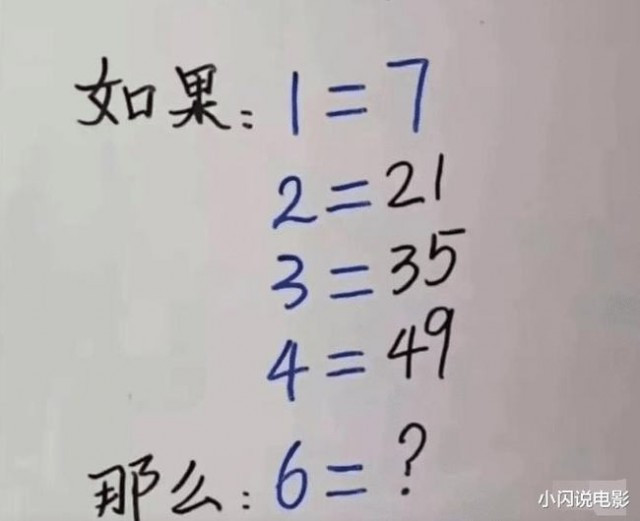 如果: 1=7
2=21
3=35
4=49
那么: 6=?
小闪说电影